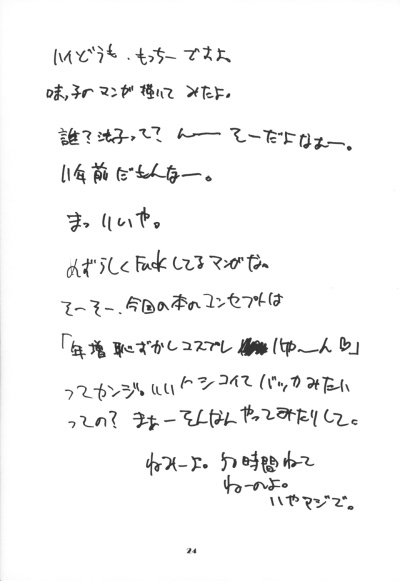 ハイどうも、もっちーですよ。
味っ子のマンガ描いてみたよ。
誰?法子って?んーーそーだよなぁー。
11年前だもんなー。
まっいいや。
めずらしくFuckしてるマンガな。
そーそー、今回の本のコンセプトは
「年増恥ずかしコスプレ いやーん♡」
ってカンジ。いい
バッカみたい
っての?まぁーそんなんやってみたりして。
ねみーよ。 時間ねて
ねーのよ。
いやマジで。
24